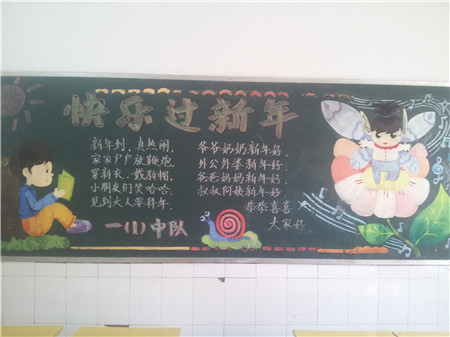 快乐过新年
新年到，真热闹，
家家户户放鞭炮。
穿新衣，戴新帽，
小朋友们笑哈哈，
见到大人要拜年。
爷爷奶奶新年好，
外公外婆新年好，
爸爸妈妈新年好，
叔叔阿姨新年好，
恭恭喜喜
大家好
一(1)中队